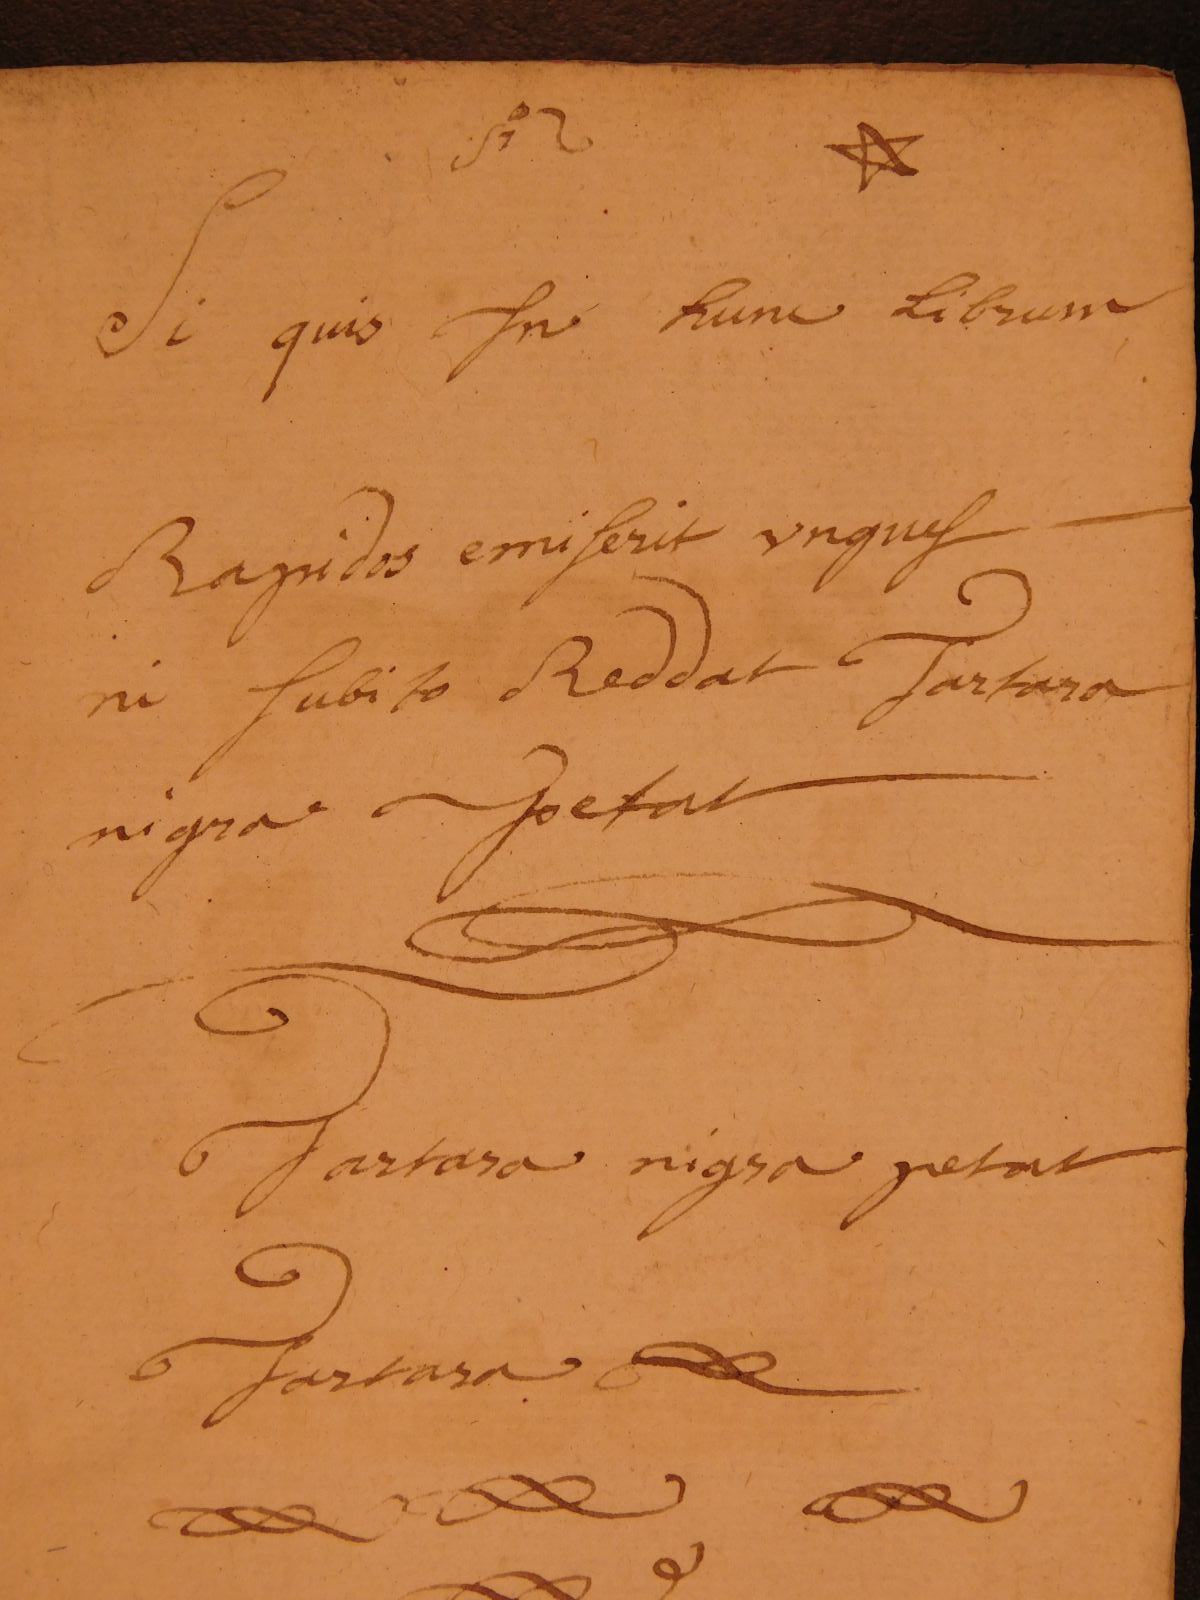 Si quis In hunc Librum
Rapidos emiserit vngues
ni subito Reddat Tartara
nigra petat
Tartara nigra petat
Tartara